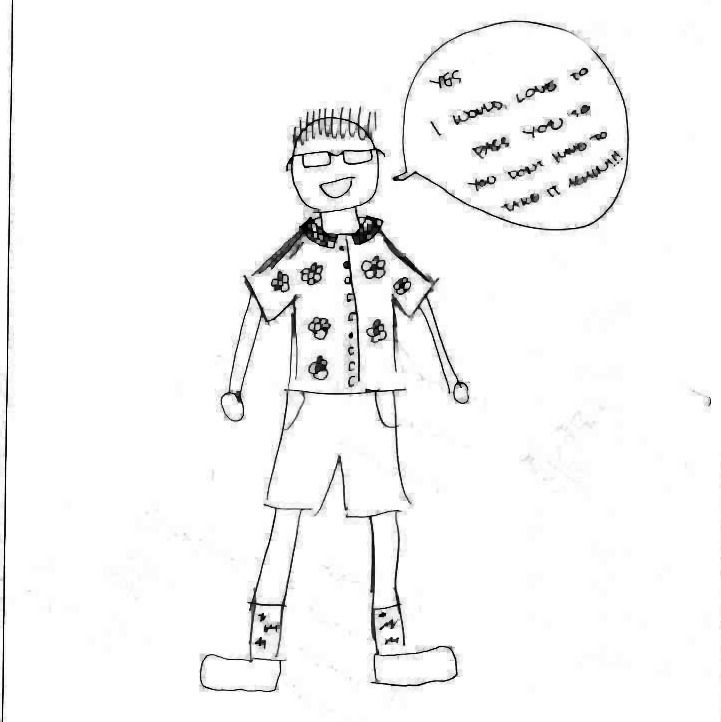 YES
I WOULD LOVE TO
PASS YOU SO
YOU DON'T HAVE TO
TAKE IT AGAIN!!!